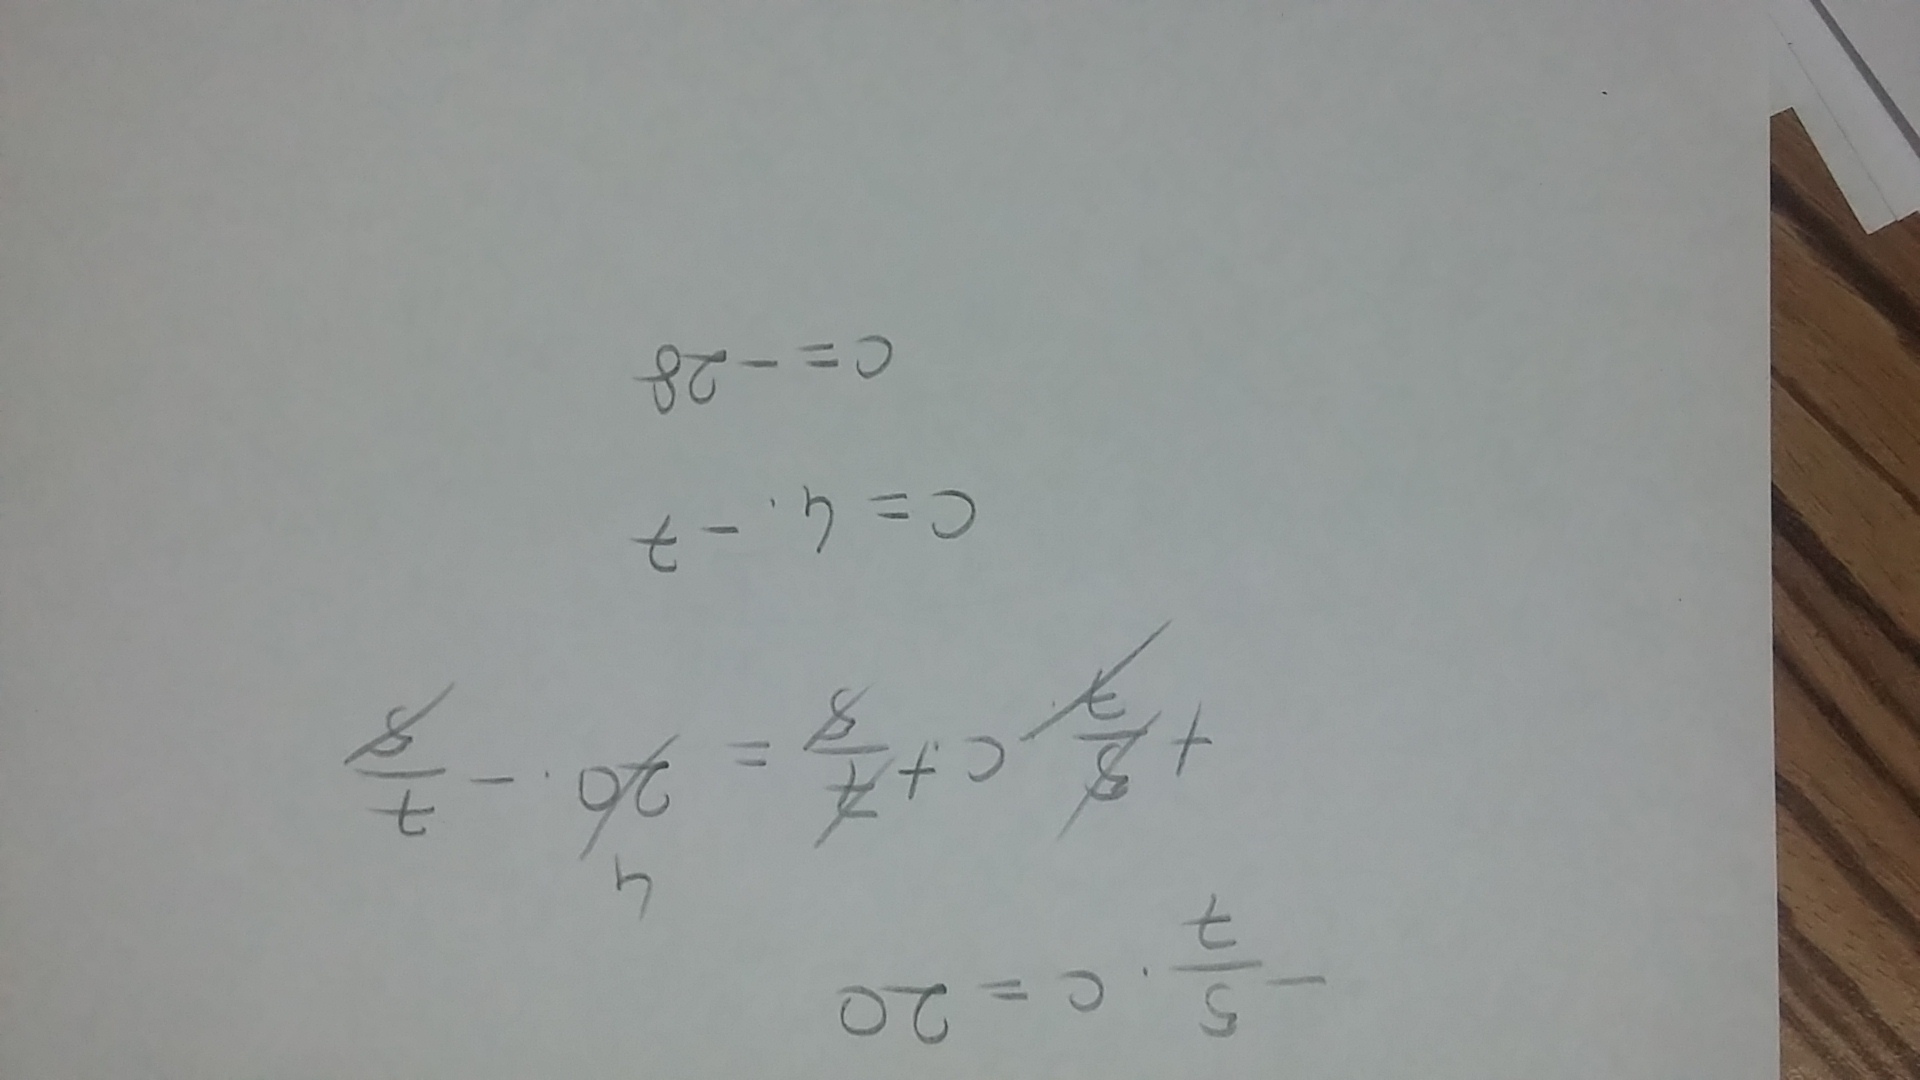 - 5/7 · c = 20
4
+ 5/7 · c + 7/5 = 20 · - 7/5
c = 4 · - 7
c = - 28